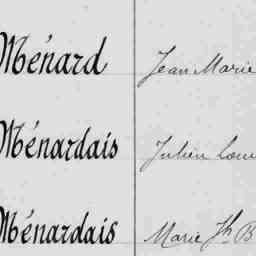 Ménard Jean Marie
Ménardais Julien Loui
Ménardais Marie Jh B